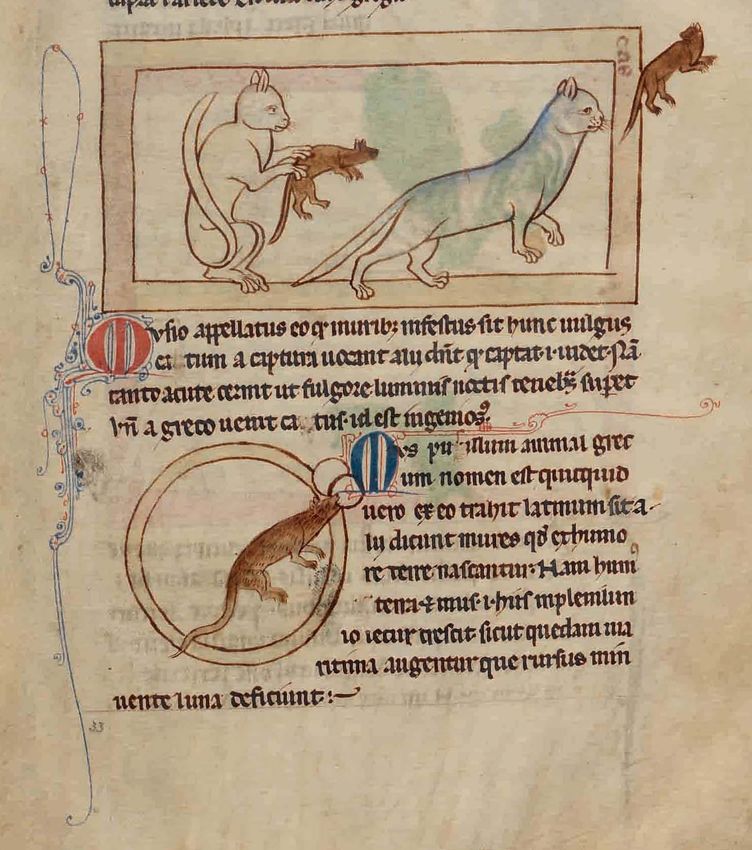 Musio appellatus eo qͥ muribꝫ infestus sit hunc uulgus
ca tum a captura uocant alii dn̄t qͥ captat .i. uidet. Nā
tanto acute cernit ut fulgore luminis noctis tenebͣs supet
hn̄ a greco uenit ca tus. id est ingeniosꝰ.
Mus pusillum animal grec
um nomen est quicquid
uero ex eo trahit latinum sit a
lii dicunt mures qd̓ ex humo
re terre nascantur. Nam humꝰ
terra ⁊ mus .i. hiis inpleniiun
io iecur crescit sicut quedam ma
ritima augentur que rursus min
uente luna deficiunt :
33